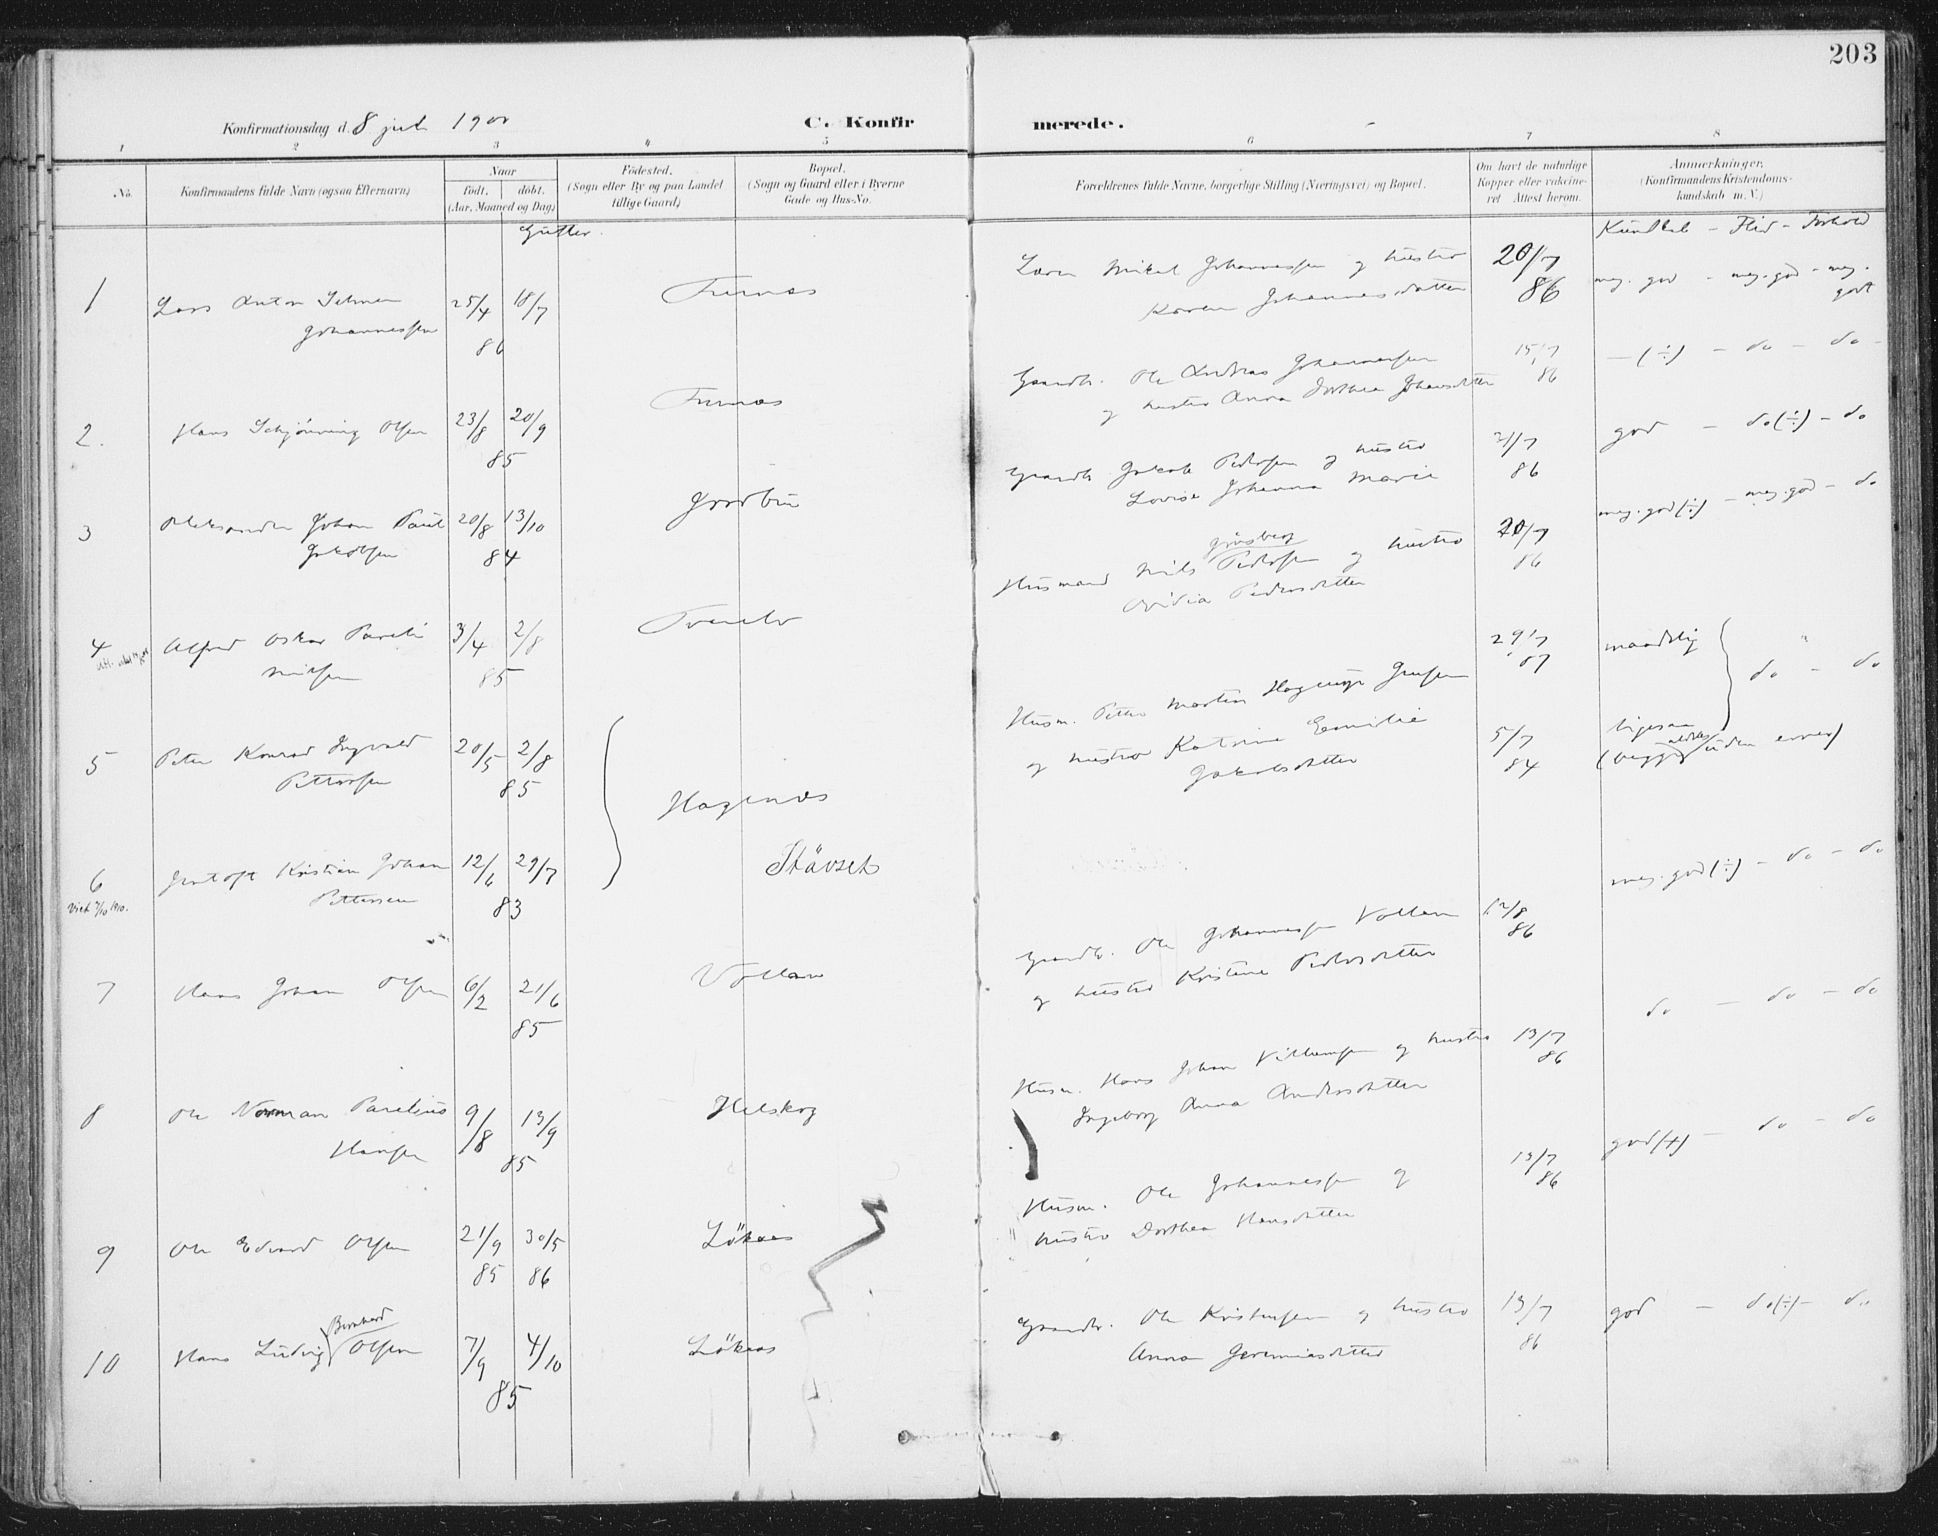 203
Konfirmationsdag d. 8 juli 1900
C. Konfirmerede.
1 2 3 4 5 6 7 8
No.
Konfirmandens fulde Navn (ogsaa Efternavn)
Naar
født. døbt.
(Aar, Maaned og Dag)
Fødested.
(Sogn eller By og paa Landet
tillige Gaard)
Bopæl.
(Sogn og Gaard eller i Byerne
Gade og Hus-No.
Forældrenes fulde Navne, borgerlige Stilling (Næringsvei) og Bopæl.
Om havt de naturlige
Kopper eller vakcine-
ret Attest herom.
Anmærkninger.
(Konfirmandens Kristendoms-
kundskab m. V.)
Gutter.
Kundskab - Flid - Forhold
1 Lars Anton Johannessen 25/4 18/7 86 Furnes
Mikal Johannessen og hustro
Karen Johannesdatter
20/7 86
meg. god - meg. god - meg. godt
2. Hans Schjønning Olsen 23/8 20/9 85 Furnes
Gaardb. Ole Andreas Johannessen
og hustro Anna Dorthea Johansdatter
15/7 86
- (÷) - do - do -
3 Aleksander Johan Paul
Jakobsen
20/8 13/10 84
Gaardb. Jakob Pedersen og hustro
Lovise Johanna Marie
21/7 86
god - do (÷) - do
4 Alfred Oskar Pareli
Nilsen
3/4 2/8 85
Husmand Nils Pedersen og hustro
Ovidia Pedersdatter
20/7 86
meg. god (÷) - meg. god - do
5 Peter Konrad Ingvald
Pettersen
20/5 2/8 85
Hagenes
Husm. Petter Martin Hagerup Jensen
og hustro Katrine Emilie
Jakobsdatter
29/7 87
maadelig
do - do
6 Jentoft Kristian Johan
Pettersen
12/6 29/7 83
Støvset
5/7 84
ligesaa
(begge uden evner)
7 Hans Johan Olsen 6/2 21/6 85 Vollan
Gaardb. Ole Johannessen Vollan
og hustro Kristine Pedersdatter
12/8 86
meg. god (÷) - do - do
8 Ole Norman Parelius
Hansen
9/8 13/9 85 Helskog
Husm. Hans Johan Villumsen og hustro
Ingeborg Anna Andersdatter
13/7 86
do - do - do
9 Ole Edvard Olsen 21/9 85 30/5 86 Løkaas
Husm. Ole Johannessen og
hustro Dorthea Hansdatter
13/7 86
god (+) - do - do
10 Hans Ludvig Bernhard Olsen 7/9 4/10 85 Løkaas
Gaardb. Ole Kristensen og hustro
Anna Jeremiasdatter
13/7 86
god - do (÷) - do